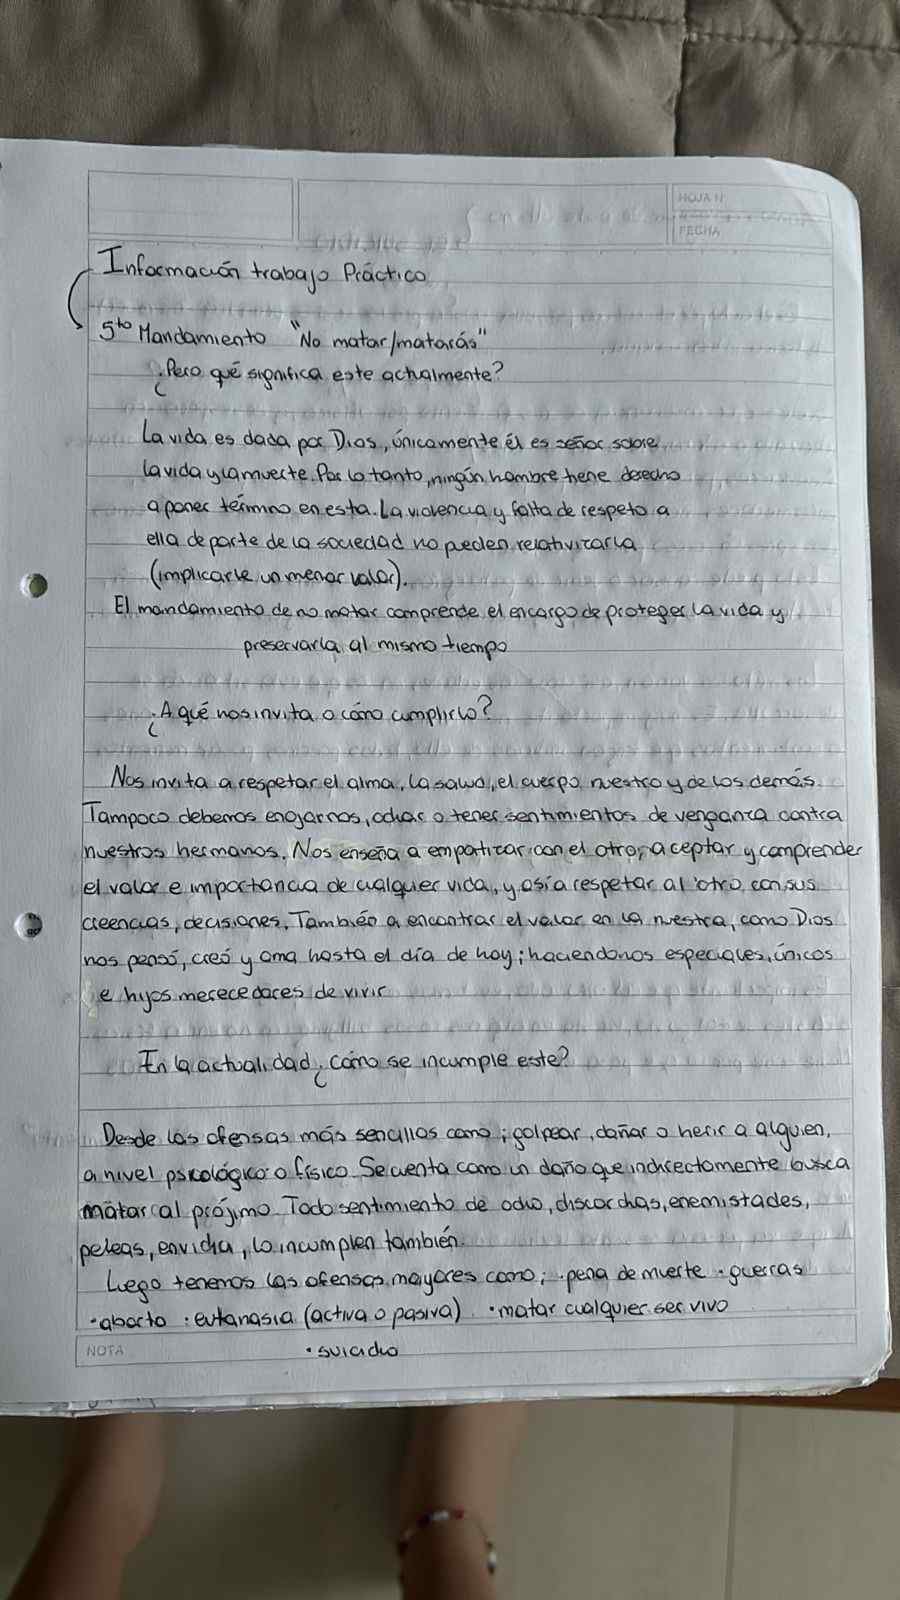 HOJA Nº
FECHA
Información trabajo Práctico
5to Mandamiento "No matar/matarás"
¿Pero qué significa este actualmente?
La vida es dada por Dios, únicamente él es señor sobre
la vida y la muerte. Por lo tanto, ningún hombre tiene derecho
a poner término en esta. La violencia y falta de respeto a
ella de parte de la sociedad no pueden relativizarla
(implicarle un menor valor).
El mandamiento de no matar comprende el encargo de proteger la vida y
preservarla al mismo tiempo
¿A qué nos invita o cómo cumplirlo?
Nos invita a respetar el alma, la salud, el cuerpo nuestro y de los demás.
Tampoco debemos enojarnos, odiar o tener sentimientos de venganza contra
nuestros hermanos. Nos enseña a empatizar con el otro, aceptar y comprender
el valor e importancia de cualquier vida, y así a respetar al otro con sus
creencias, decisiones. También a encontrar el valor en la nuestra, como Dios
nos pensó, creó y ama hasta el día de hoy; haciendonos especiales, únicos
e hijos merecedores de vivir
En la actualidad ¿cómo se incumple este?
Desde las ofensas más sencillas como; golpear, dañar o herir a alguien,
a nivel psicológico o físico. Se cuenta como un daño que indirectamente busca
matar al prójimo. Todo sentimiento de odio, discordias, enemistades,
peleas, envidia, lo incumplen también.
Luego tenemos las ofensas mayores como; ·pena de muerte ·guerras
·aborto ·eutanasia (activa o pasiva) ·matar cualquier ser vivo
NOTA ·suicidio